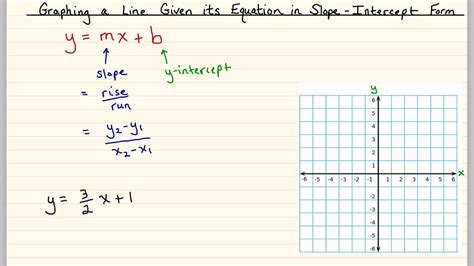 Graphing a Line Given its Equation in Slope-Intercept Form
y = mx + b
slope
y-intercept
= rise/run
= y₂-y₁/x₂-x₁
y = 3/2 x + 1
y
6
5
4
3
2
1
-6 -5 -4 -3 -2 -1 1 2 3 4 5 6 x
-1
-2
-3
-4
-5
-6